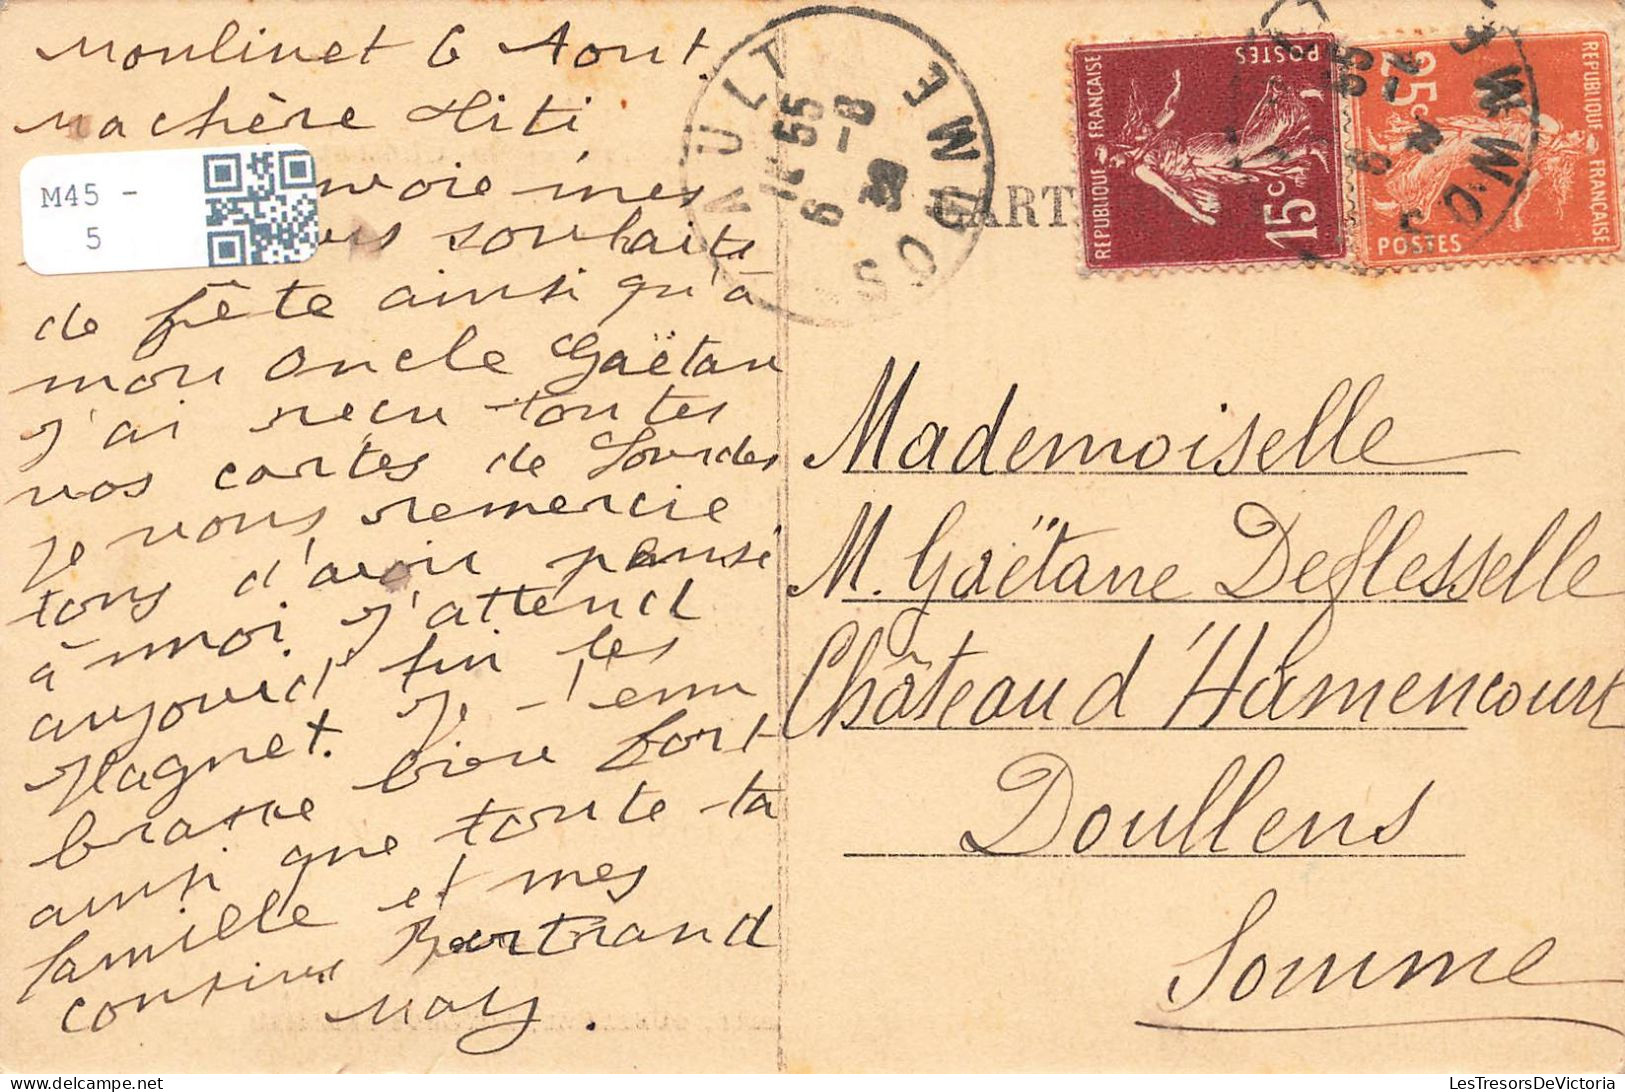 Moulinet 6 Aout.
Ma chère Titi
M45 -
5
envoie mes
souhaits
de fête ainsi qu'à
mon Oncle Gaëtan
J'ai reçu toutes
vos cartes de Lourdes
je vous remercie
tous d'avoir pensé
à moi. J'attend
aujourd'hui les
Magnet. Je t'em
brasse bien fort
ainsi que toute ta
famille et mes
cousins Bertrand
May.
AULT
SOMME
14 55
6 -8
38
CART
REPUBLIQUE FRANÇAISE
POSTES
15c
REPUBLIQUE FRANÇAISE
POSTES
25c
Mademoiselle
M. Gaëtane Deflesselle
Château d'Hamencourt
Doullens
Somme
LesTresorsDeVictoria